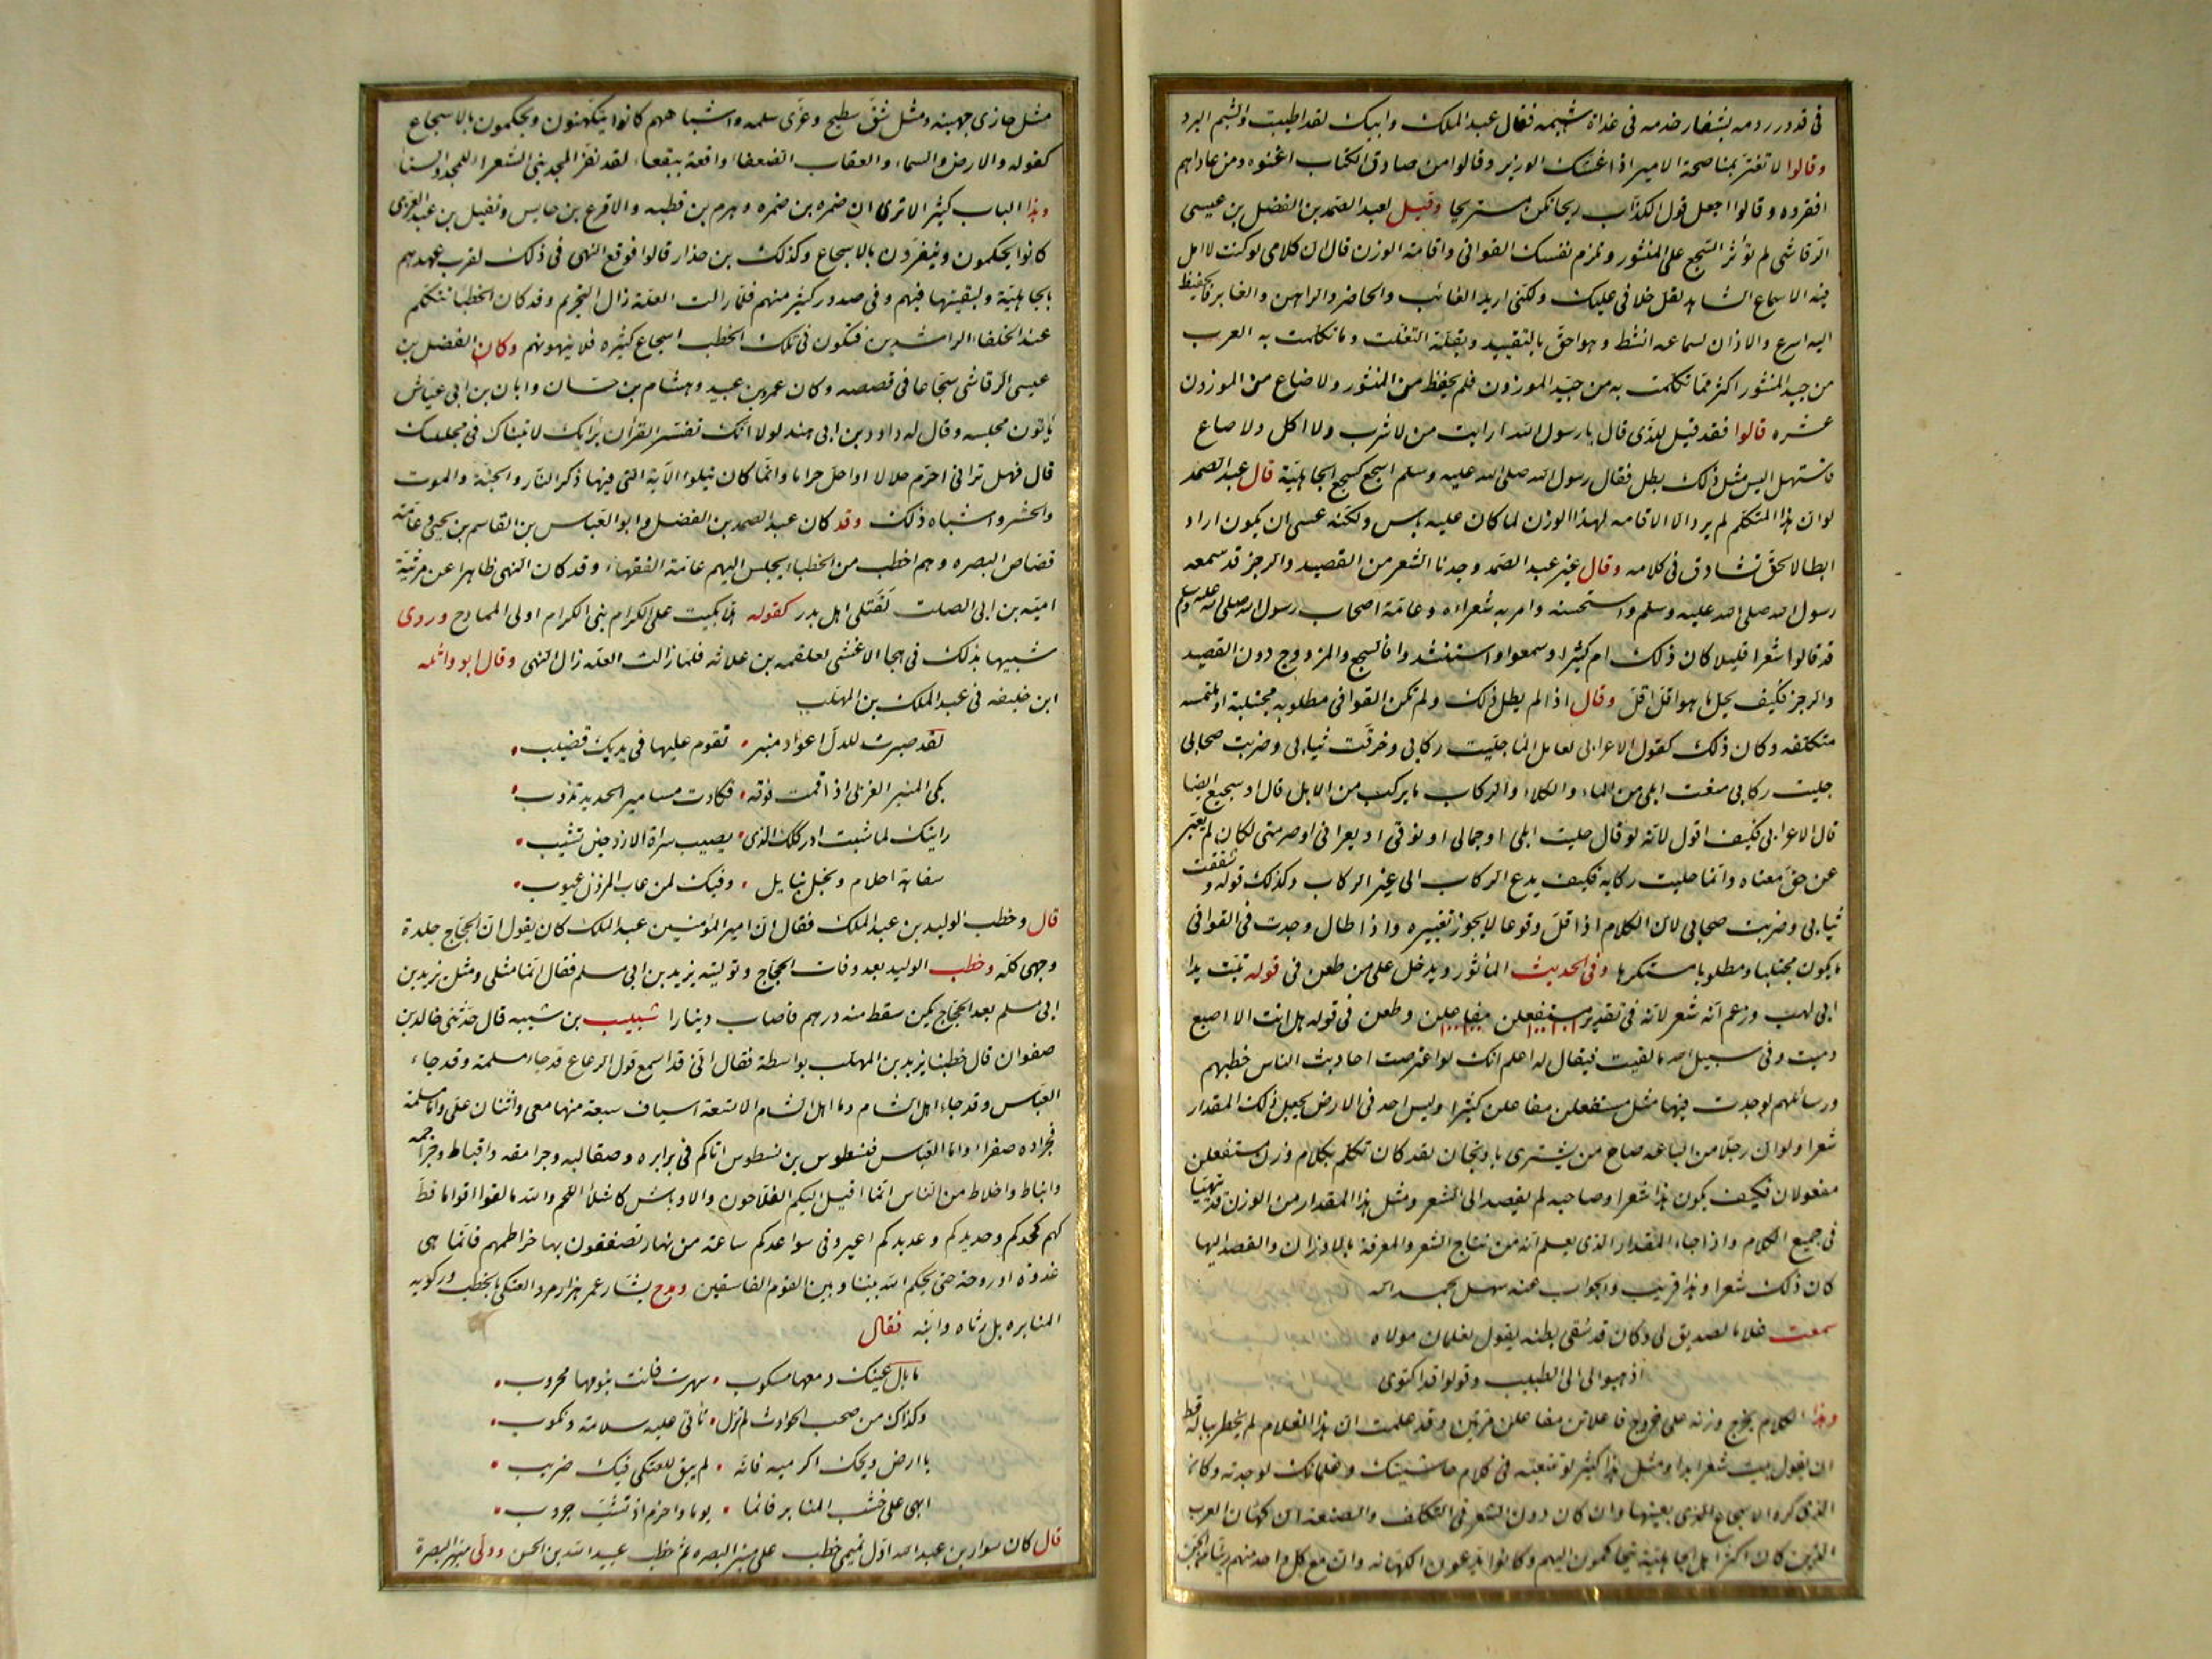 في قدور رومه بشفار خدمه في غداة شبمه فقال عبد الملك وابيك لقد اطيبت والشبم البرد
وقالوا لا تغتر بمناصحة الامير اذا غشك الوزير وقالوا من صادق الكتاب اغنوه ومن عاداهم
افقروه وقالوا اجعل قول الكذاب ريحا تكن مستريحا وقيل لعبد الصمد بن الفضل بن عيسى
الرقاشي لم تؤثر السجع على المنثور وتلزم نفسك القوافي واقامة الوزن قال ان كلامي لو كنت لا امل
فيه الا سماع الشاهد لقل خلافي عليك ولكني اريد الغائب والحاضر والراهن والغابر فالحفيظ
اليه اسرع والاذان لسماعه انشط وهو احق بالتقييد وبقلة التفلت وما تكلمت به العرب
من جيد المنثور اكثر مما تكلمت به من جيد الموزون فلم يحفظ من المنثور ولا ضاع من الموزون
عشره قالوا فقد قيل للذي قال يا رسول الله ارايت من لا شرب ولا اكل ولا صاع
فاستهل اليس مثل ذلك بطل فقال رسول الله صلى الله عليه وسلم اسجع كسجع الجاهلية قال عبد الصمد
لو ان هذا المتكلم لم يرد الا الاقامه لهذا الوزن لما كان عليه باس ولكنه عسى ان يكون اراد
ابطالا لحق تشادق في كلامه وقال غير عبد الصمد وجدنا الشعر من القصيد والرجز قد سمعه
رسول الله صلى الله عليه وسلم واستحسنه وامر به شعراءه وعامة اصحاب رسول الله صلى الله عليه وسلم
قد قالوا شعرا قليلا كان ذلك ام كثيرا وسمعوا واستنشدوا فالسجع والمزدوج دون القصيد
والرجز فكيف يحل ما هو اقل اقل وقال اذا لم يطل ذلك ولم تكن القوافي مطلوبه مجتلبة او ملتمسه
متكلفه وكان ذلك كقول الاعرابي لعامل الما حليت ركابي وخرقت ثيابي وضربت صحابي
حليت ركابي منعت ابلي من الماء والكلاء والركاب ما يركب من الابل قال او سجيع ايضا
قال الاعرابي فكيف اقول لانه لو قال حليت ابلي او جمالي او نوقي او بعراني او صرمتي لكان لم يعبر
عن حق معناه وانما حليت ركابه فكيف يدع الركاب الى غير الركاب وكذلك قوله وشققت
ثيابي وضربت صحابي لان الكلام اذا قل وقوعا لا يجوز تغييره واذا طال وجدت في القوافي
ما يكون مجتلبا ومطلوبا مستكرها وفي الحديث الماثور ويدخل على من طعن في قوله تبت يدا
ابي لهب وزعم انه شعر لانه في تقدير مستفعلن مفاعلن وطعن في قوله هل انت الا اصبع
دميت وفي سبيل الله ما لقيت فيقال له اعلم انك لو اعترضت احاديث الناس خطبهم
ورسائلهم لوجدت فيها مثل مستفعلن مفاعلن كثيرا وليس احد في الارض يجعل ذلك المقدار
شعرا ولو ان رجلا من الباعه صاح من يشتري باذنجان لقد كان تكلم بكلام وزن مستفعلن
مفعولان فكيف يكون هذا شعرا وصاحبه لم يقصد الى الشعر ومثل هذا المقدار من الوزن قد يتهيا
في جميع الكلام واذا جاء المقدار الذي يعلم انه من نتاج الشعر والمعرفة بالاوزان والقصد اليها
كان ذلك شعرا وهذا قريب والجواب عنه سهل بحمد الله
سمعت غلاما لصديق لي وكان قد سقى بطنه يقول لغلمان مولاه
اذهبوا لي الى الطبيب وقولوا قد اكتوى
وهذا الكلام يخرج وزنه على خروج فاعلاتن مفاعلن مرتين وقد علمت ان هذا الغلام لم يخطر بباله قط
ان يقول بيت شعر ابدا ومثل هذا كثير لو تتبعته في كلام حاشيتك وغلمانك لوجدته وكان
الذي كره الاسجاع الذي بعينها وان كان دون الشعر في التكلف والصنعة ان كهان العرب
الذين كان اكثر اهل الجاهلية يتحاكمون اليهم وكانوا يدعون الكهانه وان مع كل واحد منهم رئيا من الجن
مثل حازي جهينه ومثل شق سطيح وعزى سلمه واشباههم كانوا يتكهنون ويحكمون بالاسجاع
كقوله والارض والسماء والعقاب الصعفاء واقعة ببقعاء لقد نفر المجد بني الشعراء للمجد والسناء
وهذا الباب كثير الا ترى ان ضمره بن ضمره وهرم بن قطبه والاقرع بن حابس ونفيل بن عبد العزى
كانوا يحكمون وينفردون بالاسجاع وكذلك بن حذار قالوا فوقع النهي في ذلك لقرب عهدهم
بالجاهلية ولبقيتها فيهم وفي صدور كثير منهم فلما زالت العلة زال التحريم وقد كان الخطبا تتكلم
عند الخلفاء الراشدين فتكون في تلك الخطب اسجاع كثيره فلا ينهونهم وكان الفضل بن
عيسى الرقاشي سجاعا في قصصه وكان عمرو بن عبيد وهشام بن حسان وابان بن ابي عياش
ياتون مجلسه وقال له داود بن ابي هند لولا انك تفسر القران برايك لاتيناك في مجلسك
قال فهل تراني احرم حلالا او احل حراما وانما كان يتلوا الاية التي فيها ذكر النار والجنة والموت
والحشر واشباه ذلك وقد كان عبد الصمد بن الفضل وابو العباس بن القاسم بن يحيى وعامة
قصاص البصره وهم اخطب من الخطباء يجلس اليهم عامة الفقهاء وقد كان النهي ظاهرا عن مرثية
اميه بن ابي الصلت لقتلى اهل بدر كقوله الا بكيت على الكرام بني الكرام اولى الممادح وروى
شبيها بذلك في هجا الاعشى لعلقمه بن علاثه فلما زالت العله زال النهي وقال ابو واثله
ابن خليفه في عبد الملك بن المهلب
لقد صبرت للذل اعواد منبر • تقوم عليها في يديك قضيب •
بكى المنبر الغربي اذ قمت فوقه • فكادت مسامير الحديد تذوب •
رايتك لما شبت ادركك الذي • يصيب سراة الازد حين تشيب •
سفاهة احلام وبخل بنايل • وفيك لمن عاب المزون عيوب •
قال وخطب الوليد بن عبد الملك فقال ان امير المؤمنين عبد الملك كان يقول ان الحجاج جلدة
وجهي كله وخطب الوليد بعد وفات الحجاج وتوليته يزيد بن ابي مسلم فقال انما مثلي ومثل يزيد بن
ابي مسلم بعد الحجاج كمن سقط منه درهم فاصاب دينارا شبيب بن شيبه قال حدثني خالد بن
صفوان قال خطبنا يزيد بن المهلب بواسطة فقال اني قد اسمع قول الرعاع قد جاء مسلمة وقد جاء
العباس وقد جاء اهل الشام وما اهل الشام الا تسعة اسياف سبعة منها معي واثنان علي واما مسلمة
فجراده صفراء واما العباس فنسطوس بن نسطوس اتاكم في برابره وصقالبه وجرامقه واقباط وجراجمه
وانباط واخلاط من الناس انما اقبل اليكم الفلاحون والاوباش كاشلاء اللحم والله ما لقوا اقواما قط
كهم كحدكم وحديدكم وعديدكم اعيروني سواعدكم ساعة من نهار تصفقون بها خراطمهم فانما هي
غدوة او روحة حتى يحكم الله بيننا وبين القوم الفاسقين ومدح بشار عمر هزارمرد العتكي بالخطب وركوبه
المنابره بل رثاه وابنه فقال
ما بال عينك دمعها مسكوب • سهرت فانت بنومها محروب •
وكذاك من صحب الحوادث لم تزل • تأتي عليه سلامة ونكوب •
يا ارض ويحك اكرميه فانه • لم يبق للعتكي فيك ضريب •
ابهى على خشب المنابر قائما • يوما واحزم اذ تشب حروب •
قال كان سوار بن عبد الله اول تميمي خطب على منبر البصره ثم خطب عبيد الله بن الحسن وولى منبر البصرة